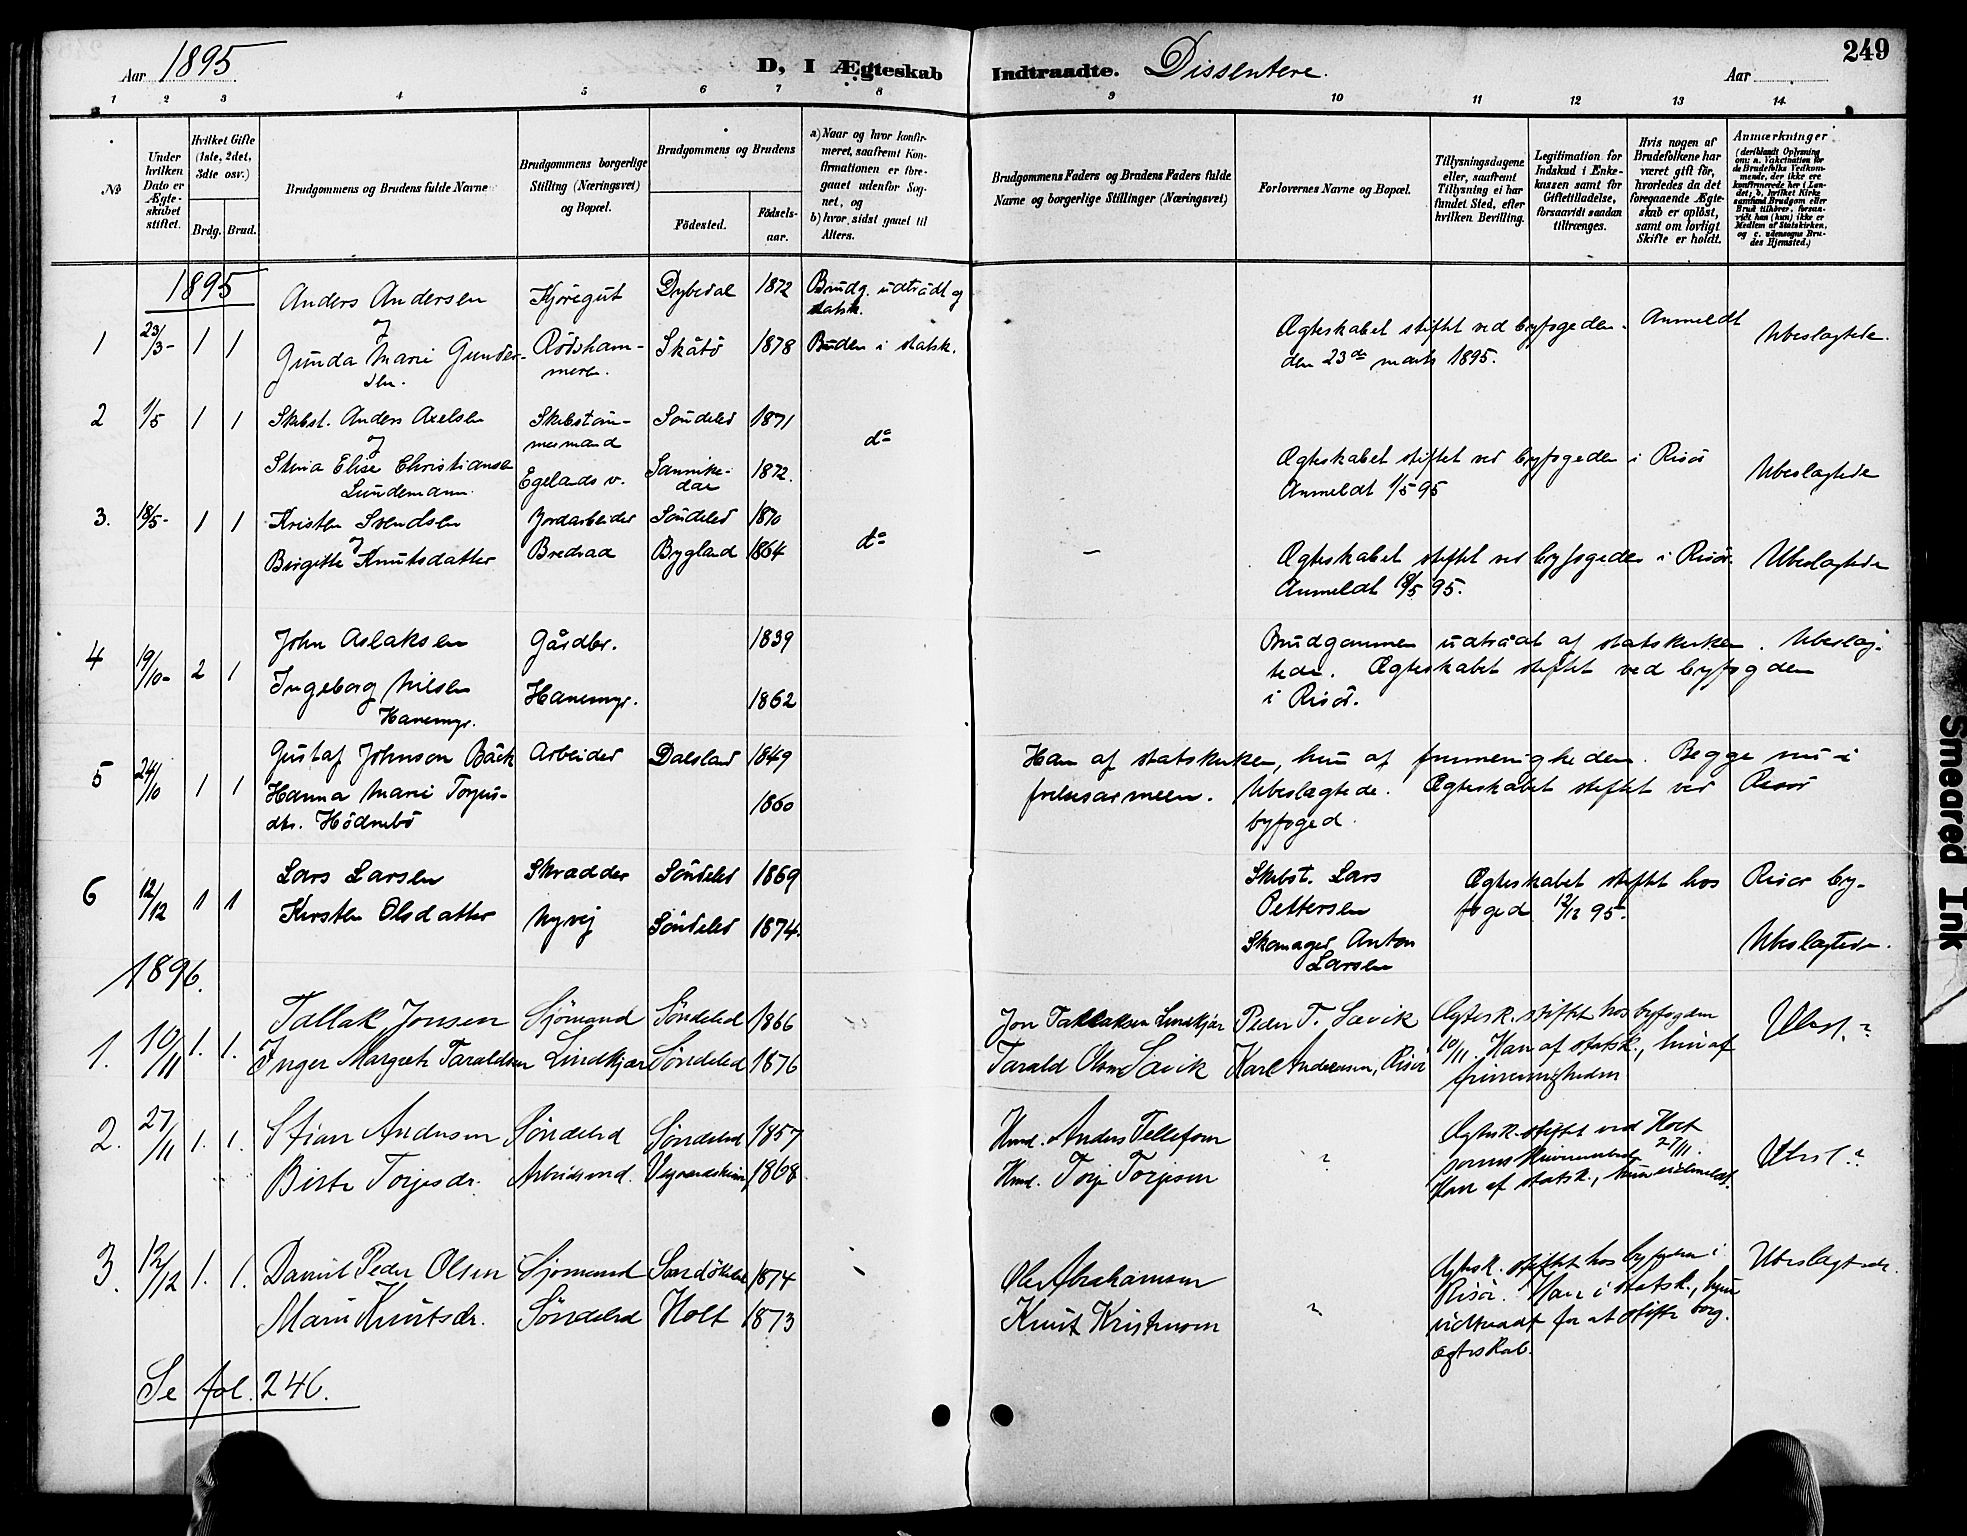 Aar 1895
D, I Ægteskab
Indtraadte. Dissentere.
Aar
249
1 2 3 4 5 6 7 8 9 10 11 12 13 14
No
Under hvilken Dato er Ægteskabet stiftet.
Hvilket Gifte (1ste, 2det, 3die osv.)
Brdg. Brud.
Brudgommens og Brudens fulde Navne
Brudgommens borgerlige Stilling (Næringsvei) og Bopæl.
Brudgommens og Brudens
Födested.
Födselsaar.
a) Naar og hvor konfirmeret, saafremt Konfirmationen er foregaaet udenfor Sognet, og
b) hvor, sidst gaaet til Alters.
Brudgommens Faders og Brudens Faders fulde Navne og borgerlige Stillinger (Næringsvei)
Forlovernes Navne og Bopæl.
Tillysningsdagene eller, saafremt Tillysning ei har fundet Sted, efter hvilken Bevilling.
Legitimation for Indskud i Enkekassen samt for Giftetilladelse, forsaavidt saadan tiltrænges.
Hvis nogen af Brudefolkene har været gift för, hvorledes da det foregaaende Ægteskab er oplöst, samt om lovligt Skifte er holdt.
Anmærkninger (deriblandt Oplysning om: a. Vakcination for de Brudefolks Vedkommende, der ikke ere konfirmerede her i Landet; b. hvilket Kirkesamfund Brudgom eller Brud tilhörer, forsaavidt han (hun) ikke er Medlem af Statskirken, og c. udensogns Brudes Hjemsted.)
1895
1 23/3- 1 1 Anders Andersen Kjöregut Dybedal 1872 Brudg. udtrådt og statsk.
og
Gunda Marie Gundersen. Rödshammeren. Skåtö 1878 Bruden i statsk.
Ægteskabet stiftet ved byfogeden. Anmeldt
den 23de marts 1895.
Ubeslægtede.
2 1/5 1 1 Skibst. Anders Axelsen Skibstömmermand Söndeled 1871
og
Stina Elise Christiansen Lundemann. Egelands v. Sannikedal 1872. do
Ægteskabet stiftet ved byfogeden i Risör
Anmeldt 1/5 95
Ubeslægtede
3. 18/5- 1 1 Kristen Svendsen Jordarbeider Söndeled 1870
og
Birgitte Knutsdatter Bredsad Bygland 1864 do
–
Ægteskabet stiftet ved byfogeden i Risör.
Anmeldt 18/5 95.
Ubeslægtede
4 19/10- 2 1 John Aslaksen Gårdbr. 1839
Ingeborg Nilsen Hanemyr. Hanemyr. 1862
Brudgommen udtrådt af statskirken. Ubeslæg-
tede. Ægteskabet stiftet ved byfogden
i Risör.
5 24/10 1 1 Gustaf Johnson Bäck Arbeider Dalsland 1849
Hanna Marie Torjus-
dtr. Hödnebö 1860
Han af statskirken, hun af frimenigheden. Begge nu i
frelsesarmeen. Ubeslægtede. Ægteskabet stiftet ved Risör
byfoged.
6 12/12 1 1 Lars Larsen Skrædder Söndeled 1869
Kirsten Olsdatter Nyvej Söndeled 1874.
Skibst. Lars
Pettersen
Skomager Anton
Larsen
Ægteskabet stiftet hos Risør by-
foged 12/12 95.
Ubeslægtede.
1896.
1. 10/11 1. 1. Tallak Jonsen Sjömand Söndeled 1866
Inger Margreth Taraldsen Lindkjær Söndeled 1876
Jon Tallaksen Lindkjær
Tarald Olsen Savik
Peder T. Savik
Karl Andersen, Risör
Ægtesk. stiftet hos byfogden
10/11. Han af statsk., hun af
frimenigheden
Ubesl.?
2. 27/11 1. 1. Stian Andersen Söndeled Söndeled 1857
Birte Torjesdr. Arbeidsmd. 1868
Hmd. Anders Tellefsen
Hmd. Torje Torjesen
?
Ægtesk. stiftet ved Holt
27/11.
Han af statsk., hun udmeldt.
Ubesl.?
3. 12/12 1. 1. Daniel Peder Olsen Sjömand Sandökedal 1874
Marie Knutsdr. Söndeled Holt 1873
Ole Abrahamsen
Knut Kristensen
?
Ægtesk. stiftet hos byfogden i
Risör. Han i statsk., hun
udtraadt for at stifte borg.
ægteskab.
Ubeslægtede.
Se fol. 246.
Smeared Ink